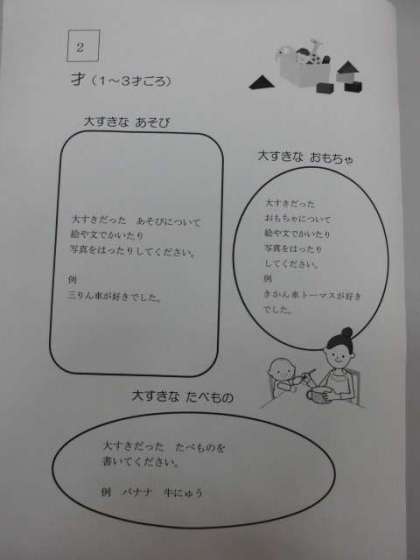 2
才（1～3才ごろ）
大すきな あそび
大すきだった　あそびについて
絵や文でかいたり
写真をはったりしてください。
例
三りん車が好きでした。
大すきな おもちゃ
大すきだった
おもちゃについて
絵や文でかいたり
写真をはったり
してください。
例
きかん車トーマスが好き
でした。
大すきな たべもの
大すきだった　たべものを
書いてください。
例　バナナ　牛にゅう